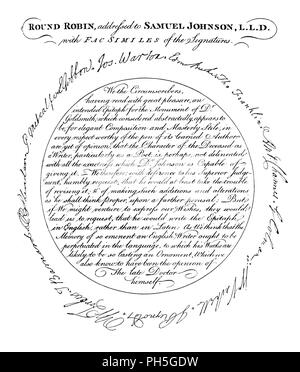 ROUND ROBIN, addressed to SAMUEL JOHNSON, L.L.D.
with FAC SIMILES of the Signatures.
Edm Gibbon, Jos. Warton
We the Circumscribers,
having read with great pleasure, an
intended Epitaph for the Monument of Dr.
Goldsmith, which considered abstractedly, appears to
be, for elegant Composition and Masterly Stile, in
every respect worthy of the pen of its learned Author;
are yet of opinion, that the Character of the Deceased as
a Writer, particularly as a Poet, is, perhaps, not delineated
with all the exactness which Dr. Johnson is Capable of
giving it. We therefore, with deference to his Superior Judg-
ment, humbly request, that he would at least take the trouble
of revising it; & of making such additions and alterations
as he shall think proper, upon a further perusal: But
if We might venture to express our Wishes, they would
lead us to request, that he would write the Epitaph
in English, rather than in Latin: As We think that the
Memory of so eminent an English Writer ought to be
perpetuated in the language, to which his Works are
likely to be so lasting an Ornament, Which we
also know to have been the opinion of
The late Doctor
himself.
J. Reynolds
alamy
PH5GDW